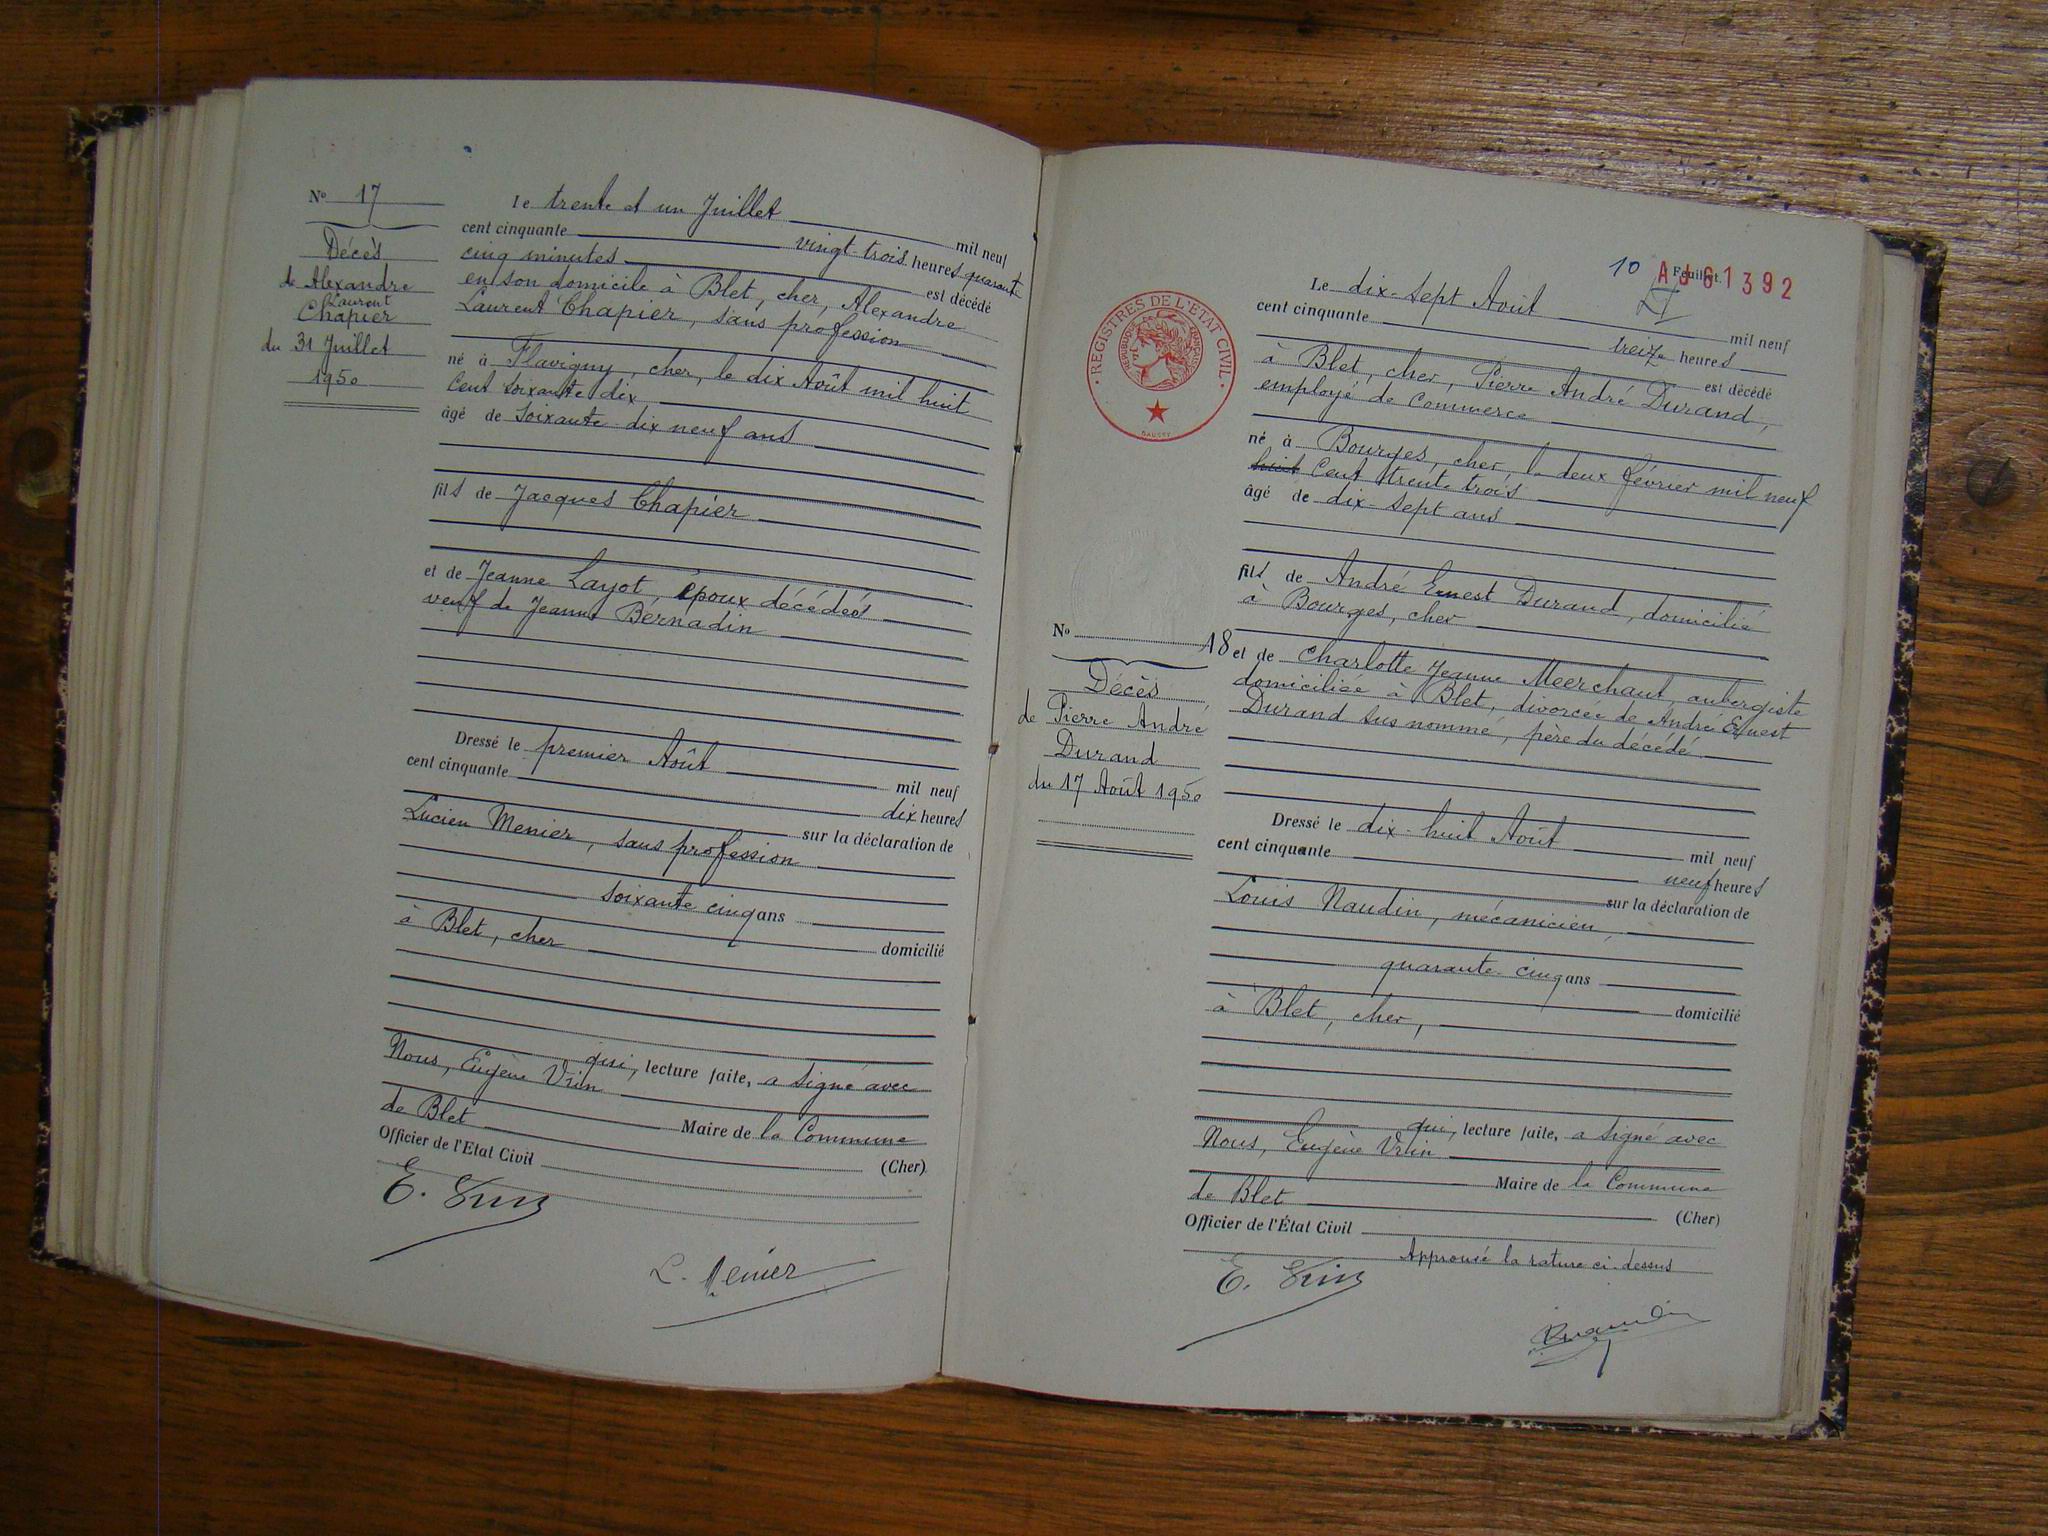 No 17
Décès
de Alexandre
Laurent
Chapier
du 31 Juillet
1950
Le trente et un Juillet mil neuf
cent cinquante vingt-trois heures quarante
cinq minutes est décédé
en son domicile à Blet, cher, Alexandre
Laurent Chapier, sans profession
né à Flavigny, cher, le dix Août mil huit
cent soixante dix
âgé de soixante-dix neuf ans
fils de Jacques Chapier
et de Jeanne Layot, époux décédés
veuf de Jeanne Bernadin
Dressé le premier Août mil neuf
cent cinquante dix heures
sur la déclaration de
Lucien Menier, sans profession
soixante cinq ans
domicilié
à Blet, cher
qui, lecture faite, a signé avec
Nous, Eugène Vrin
Maire de la Commune
de Blet (Cher)
Officier de l'Etat Civil
E. Vrin
L. Menier
10 Feuillet. AJ61392
REGISTRES DE L'ÉTAT CIVIL
RÉPUBLIQUE FRANÇAISE
Le dix-sept Août mil neuf
cent cinquante treize heures
est décédé
à Blet, cher, Pierre André Durand,
employé de commerce
né à Bourges, cher, le deux février mil neuf
huit cent trente trois
âgé de dix-sept ans
fils de André Ernest Durand, domicilié
à Bourges, cher
No 18
Décès
de Pierre André
Durand
du 17 Août 1950
et de Charlotte Jeanne Meerchaut, aubergiste
domiciliée à Blet, divorcée de André Ernest
Durand sus nommé, père du décédé
Dressé le dix-huit Août mil neuf
cent cinquante neuf heures
sur la déclaration de
Louis Naudin, mécanicien,
quarante-cinq ans
domicilié
à Blet, cher,
qui, lecture faite, a signé avec
Nous, Eugène Vrin
Maire de la Commune
de Blet (Cher)
Officier de l'État Civil
Approuvé la rature ci-dessus
E. Vrin